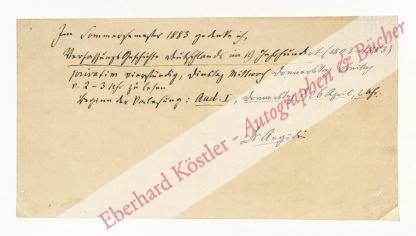 Im Sommersemester 1883 gedenke ich,
Verfassungs Geschichte Deutschlands im 19 Jahrhundert
privatim vierstündig, Dinstag Mittwoch Donnerstag Freitag
v. 2-3 Uhr zu lesen
Beginn der Vorlesung: Aud. I, Donnerstag 26 April, 2 Uhr.
Dr Aegidi
Eberhard Köstler - Autographen & Bücher